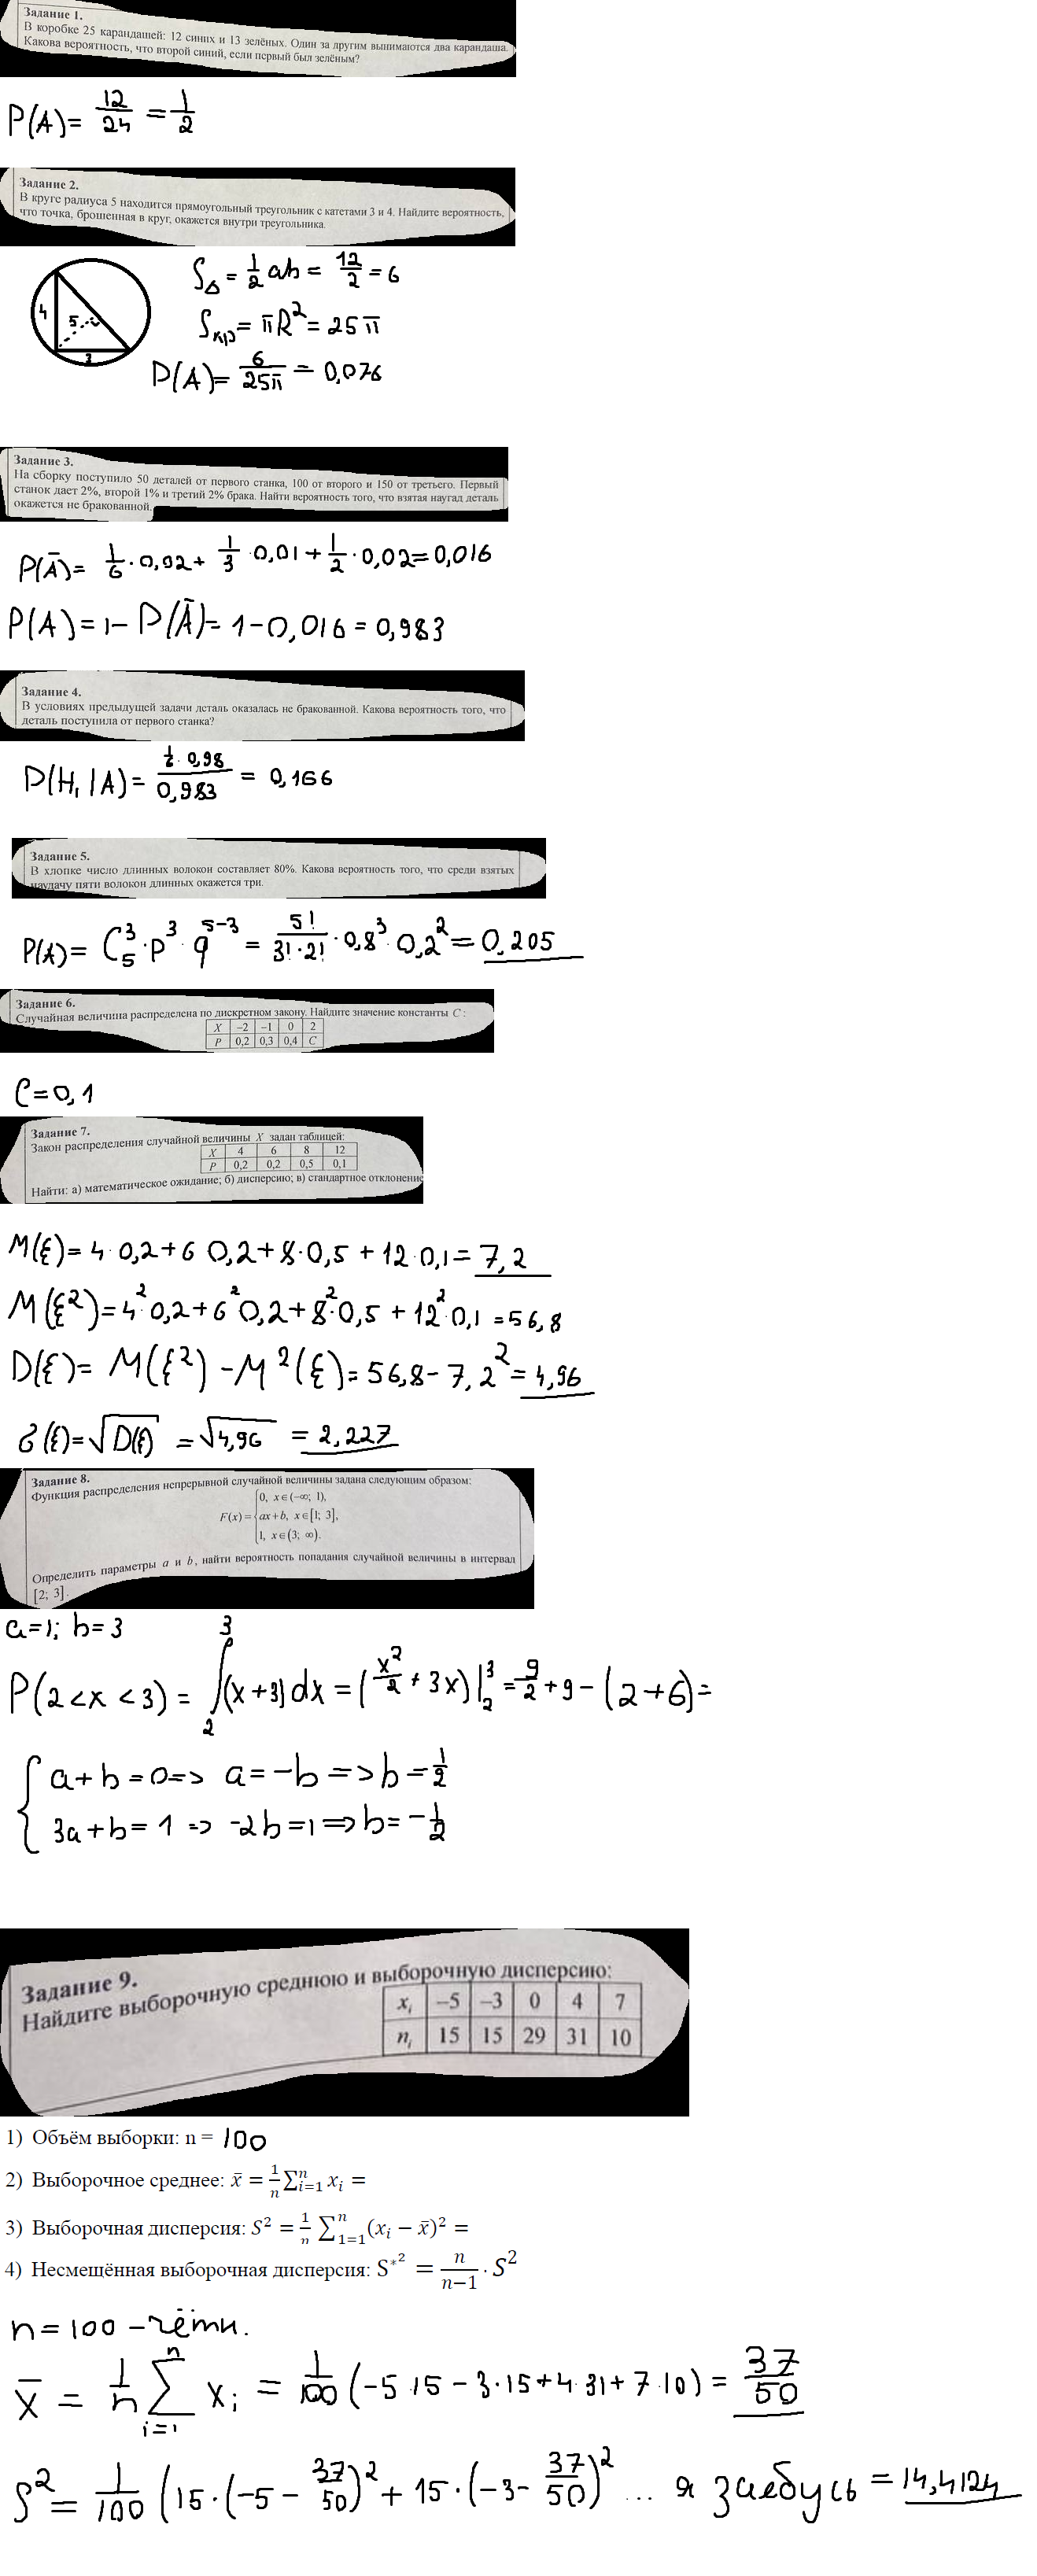 Задание 1.
В коробке 25 карандашей: 12 синих и 13 зелёных. Один за другим вынимаются два карандаша.
Какова вероятность, что второй синий, если первый был зелёным?
P(A)= 12/24 = 1/2
Задание 2.
В круге радиуса 5 находится прямоугольный треугольник с катетами 3 и 4. Найдите вероятность,
что точка, брошенная в круг, окажется внутри треугольника.
4
5
3
S△ = 1/2 ab = 12/2 = 6
Sкр = πR² = 25π
P(A)= 6/25π = 0,076
Задание 3.
На сборку поступило 50 деталей от первого станка, 100 от второго и 150 от третьего. Первый
станок дает 2%, второй 1% и третий 2% брака. Найти вероятность того, что взятая наугад деталь
окажется не бракованной.
P(Ā)= 1/6 · 0,02 + 1/3 · 0,01 + 1/2 · 0,02 = 0,016
P(A) = 1 - P(Ā) = 1 - 0,016 = 0,983
Задание 4.
В условиях предыдущей задачи деталь оказалась не бракованной. Какова вероятность того, что
деталь поступила от первого станка?
P(H₁|A) = 1/6 · 0,98 / 0,983 = 0,166
Задание 5.
В хлопке число длинных волокон составляет 80%. Какова вероятность того, что среди взятых
наудачу пяти волокон длинных окажется три.
P(A) = C₅³ · p³ · q⁵⁻³ = 5!/3!·2! · 0,8³ · 0,2² = 0,205
Задание 6.
Случайная величина распределена по дискретном закону. Найдите значение константы C:
X −2 −1 0 2
P 0,2 0,3 0,4 C
C = 0,1
Задание 7.
Закон распределения случайной величины X задан таблицей:
X 4 6 8 12
P 0,2 0,2 0,5 0,1
Найти: а) математическое ожидание; б) дисперсию; в) стандартное отклонение
M(ξ) = 4·0,2+6 0,2+8·0,5+12·0,1 = 7,2
M(ξ²) = 4²·0,2+6²0,2+8²·0,5+12²·0,1 = 56,8
D(ξ) = M(ξ²) - M²(ξ) = 56,8 - 7,2² = 4,96
σ(ξ) = √D(ξ) = √4,96 = 2,227
Задание 8.
Функция распределения непрерывной случайной величины задана следующим образом:
0, x∈(−∞; 1),
F(x) = ax+b, x∈[1; 3],
1, x∈(3; ∞).
Определить параметры a и b, найти вероятность попадания случайной величины в интервал
[2; 3].
a=1; b=3
P(2<x<3) = ∫₂³(x+3)dx = (x²/2 + 3x)|₂³ = 9/2 + 9 - (2+6) =
{ a+b=0 => a=-b => b=1/2
3a+b=1 => -2b=1 => b=-1/2
Задание 9.
Найдите выборочную среднюю и выборочную дисперсию:
xᵢ −5 −3 0 4 7
nᵢ 15 15 29 31 10
1) Объём выборки: n = 100
2) Выборочное среднее: x̄ = 1/n ∑ⁿᵢ₌₁ xᵢ =
3) Выборочная дисперсия: S² = 1/n ∑ⁿ₁₌₁(xᵢ − x̄)² =
4) Несмещённая выборочная дисперсия: S*² = n/n−1 · S²
n = 100 - чётн.
X̄ = 1/n ∑ⁿᵢ₌₁ xᵢ = 1/100 (-5·15 - 3·15+4·31+7·10) = 37/50
S² = 1/100 (15·(-5 - 37/50)² + 15·(-3 - 37/50)² ... я заебусь = 14,4124